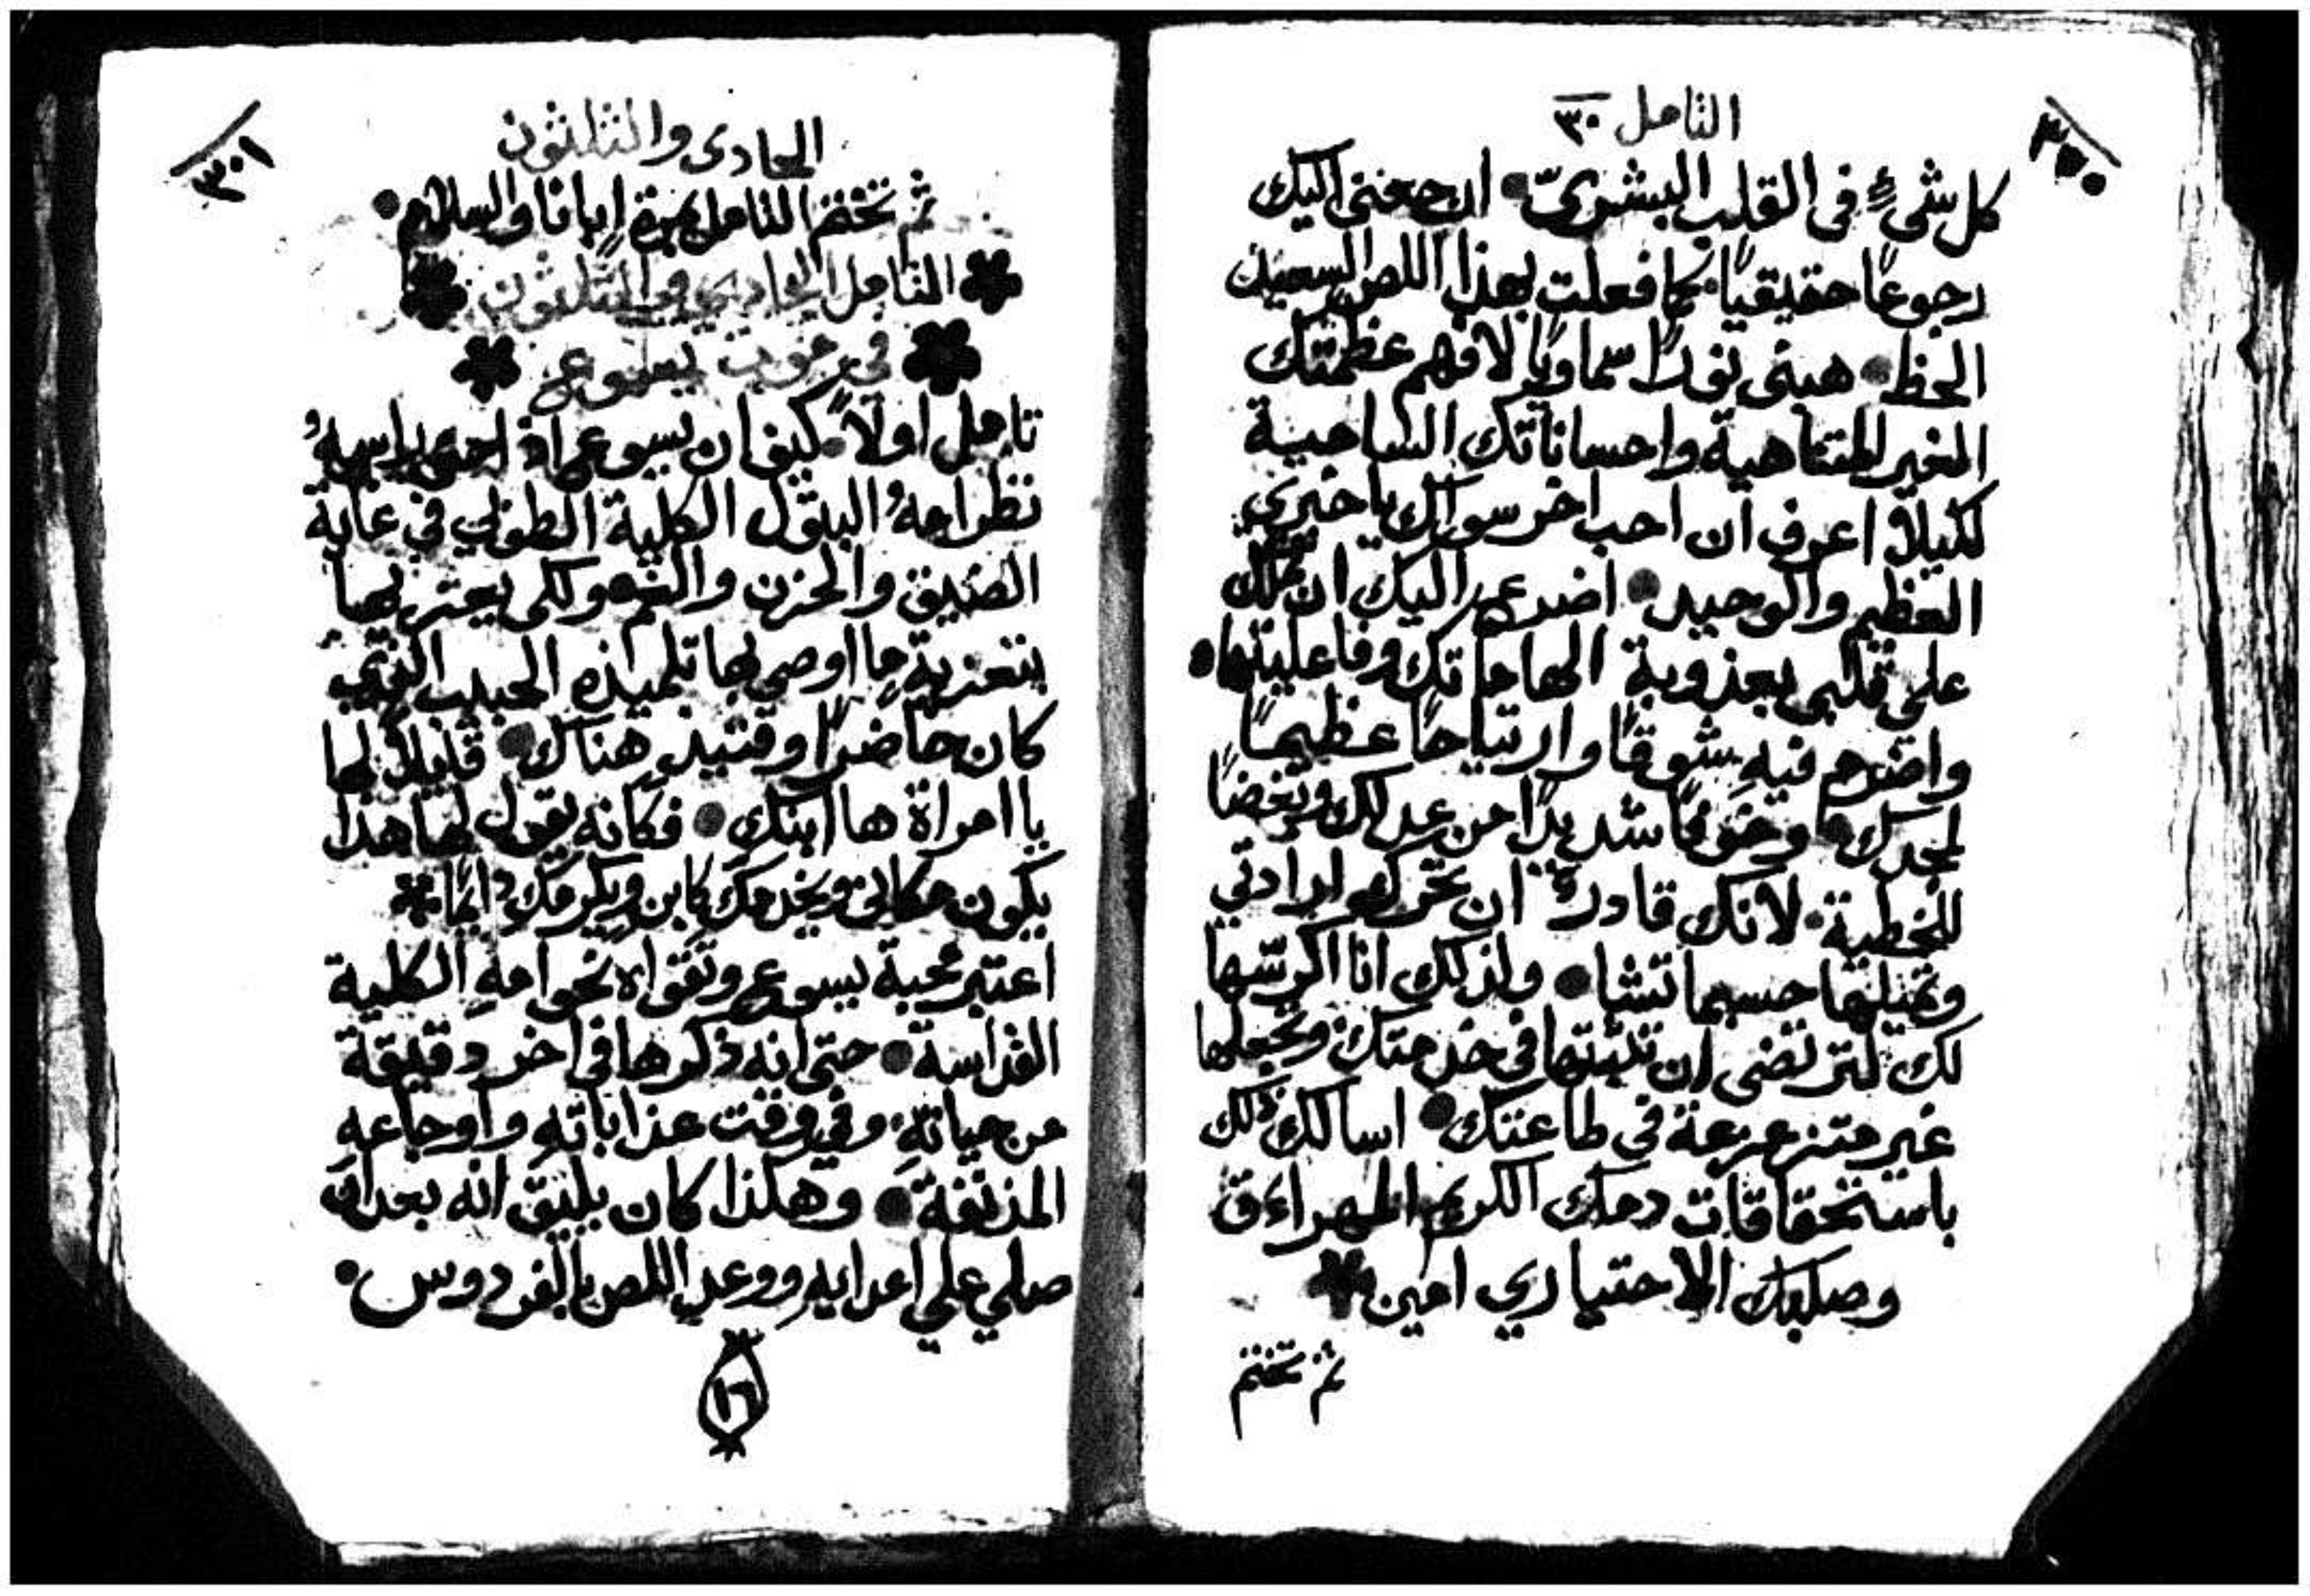 ٣٠٠
التامل ٣٠
كل شيءٍ في القلب البشريّ • ارجعني اليك
رجوعاً حقيقياً كما فعلت بهذا اللص السعيد
الحظ • هبني نوراً سماوياً لافهم عظمتك
الغير المتناهية واحساناتك السامية
لكيلا اعرف ان احب اخر سواك يا خيري
العظيم والوحيد • اضرع اليك ان تملك
علي قلبي بعذوبة الهاماتك وفاعليتها •
واضرم فيهِ شوقاً وارتياحاً عظيماً
لمجدك • وخوفاً شديداً من عدلك وبغضاً
للخطية • لانك قادرٌ ان تحرك ارادتي
وتميلها حسبما تشا • ولذلك انا اكرّسها
لك لترتضي ان تثبتها في خدمتك وتجعلها
غير متزعزعة في طاعتك • اسالك ذلك
باستحقاقات دمك الكريم المهراق
وصلبك الاختياري امين
ثم تختم
٣٠١
الحادى والثلثون
ثم تختم التامل بمرة ابانا والسلام •
التامل الحادي والثلثون
في موت يسوع
تامل اولاً كيف ان يسوع اذ احنى براسهِ
نظر امهُ البتول الكلية الطوبي في غاية
الضيق والحزن والغم ولكي يعتربها
بتعزية ما اوصي بها تلميذه الحبيب الذي
كان حاضراً وقتيذٍ هناك • قايلاً لها
يا امراة ها ابنك • فكانه يقول لها هذا
يكون مكاني ويخدمك كابن ويكرمك دايماً
اعتبر محبة يسوع وتقواه نحو امهِ الكلية
القداسة • حتى انه ذكرها في اخر دقيقة
من حياتهِ وفي وقت عذاباتهِ واوجاعهِ
المذنفة • وهكذا كان يليق انه بعد ان
صلي علي اعدايهِ ووعد اللص بالفردوس •
١٦